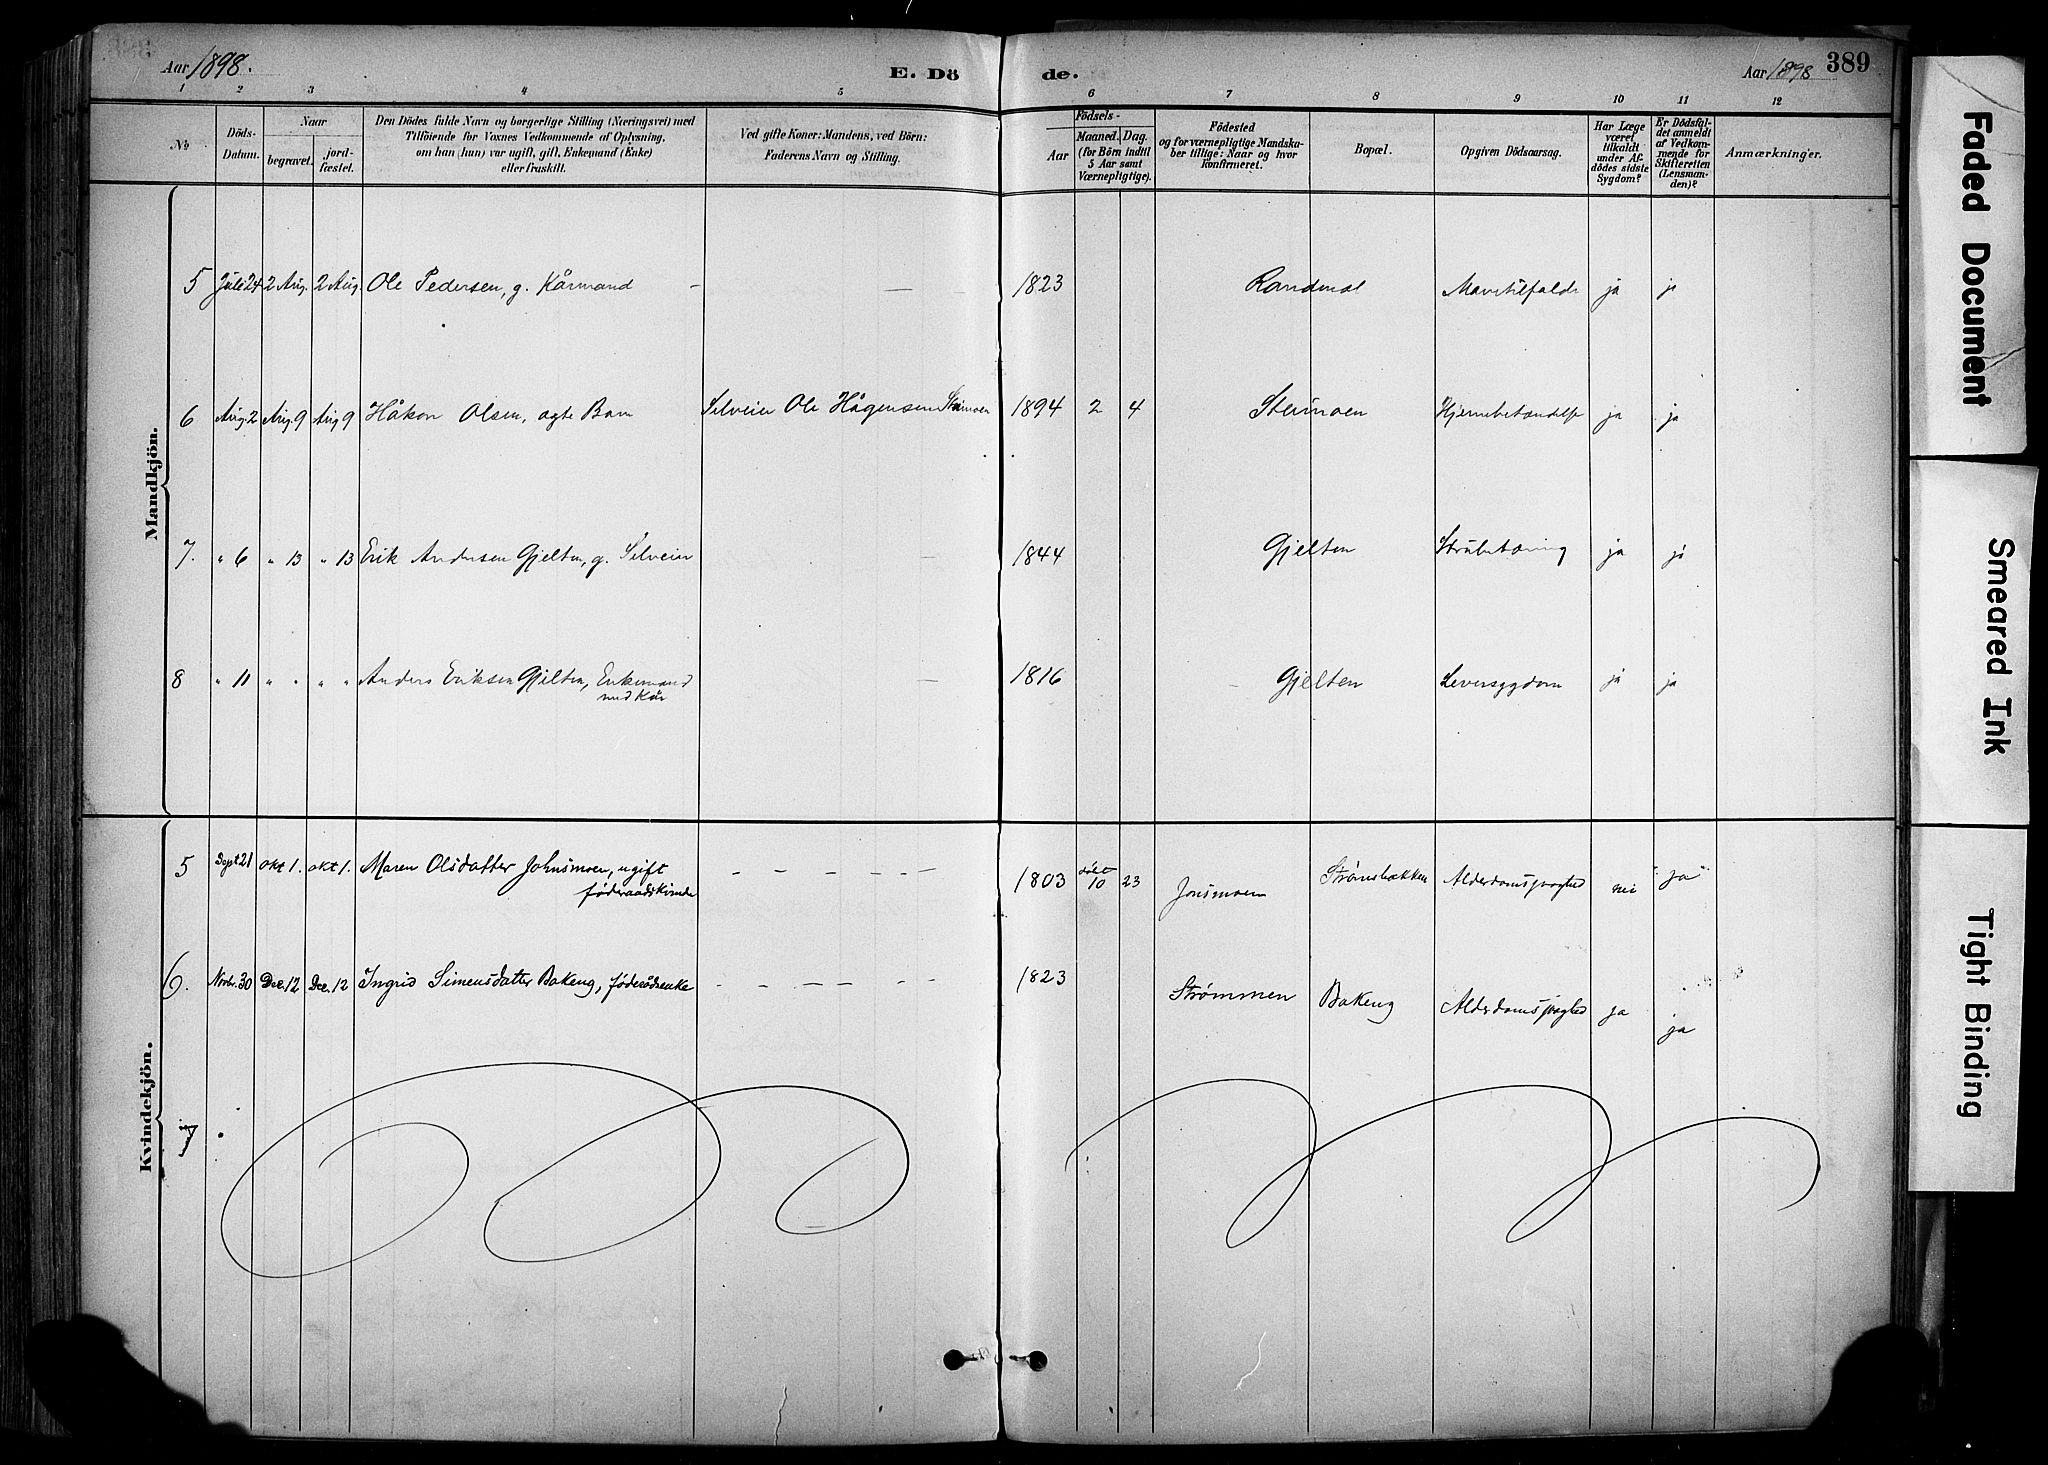 Aar 1898.
E. Döde.
Aar 1898
389
1 2 3 4 5 6 7 8 9 10 11 12
№
Döds-Datum.
Naar
begravet.
jord-fæstet.
Den Dödes fulde Navn og borgerlige Stilling (Næringsvei) med
Tilföiende for Voxnes Vedkommende af Oplysning,
om han (hun) var ugift, gift, Enkemand (Enke)
eller fraskilt.
Ved gifte Koner: Mandens, ved Börn:
Faderens Navn og Stilling.
Födsels-
Aar
Maaned. Dag.
(for Börn indtil
5 Aar samt
Værnepligtige).
Födested
og for værnepligtige Mandska-
ber tillige: Naar og hvor
konfirmeret.
Bopæl.
Opgiven Dödsaarsag.
Har Læge
været
tilkaldt
under Af-
dödes sidste
Sygdom?
Er Dödsfal-
det anmeldt
af Vedkom-
mende for
Skifteretten
(Lensman-
den)?
Anmærkninger.
Mandkjön.
5 Juli 24 2 Aug. 2 Aug. Ole Pedersen, g. Kårmand – — 1823 Randmæl Mavetilfælde ja ja
6 Aug. 2 Aug. 9 Aug 9 Håkon Olsen, ægte Barn Selveier Ole Hågensen Steimoen 1894 2 4 Steimoen Hjernebetændelse ja ja
7. " 6 " 13 " 13 Erik Andersen Gjelten, g. Selveier — 1844 Gjelten Strubetæring ja ja
8 " 11 " " " " Anders Eriksen Gjelten, Enkemand
med Kår — 1816 Gjelten Leversygdom ja ja
Kvindekjön.
5 Sept 21 okt 1. okt 1. Maren Olsdatter Johnsmoen, ugift
føderaadskvinde – – – – – — 1803 10 23 Jonsmoen Strømsbakken Alderdomssvaghed nei "ja"
6. Novbr. 30 Dec. 12 Dec. 12 Ingrid Simensdatter Bakeng, føderådsenke – – — — – – 1823 Strømmen Bakeng Alderdomssvaghed ja ja
7
Faded Document
Smeared Ink
Tight Binding